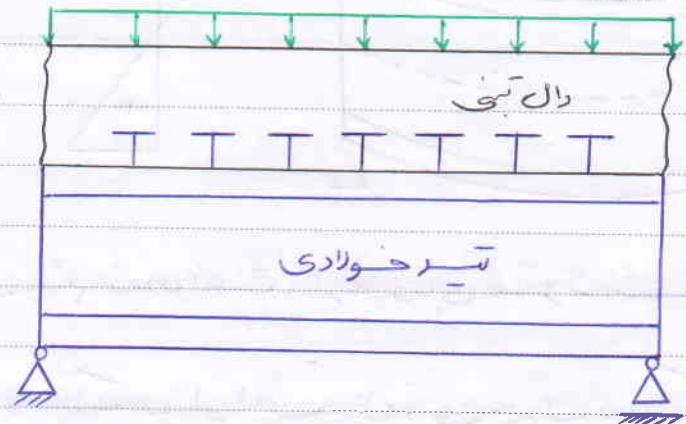 دال بتنی
تیر فولادی